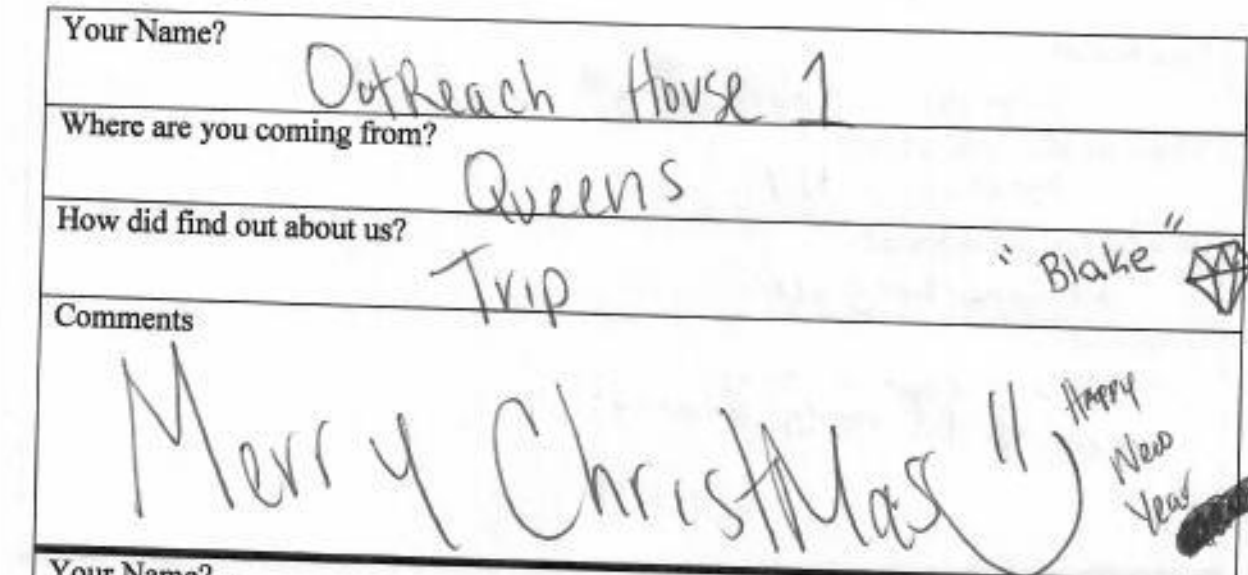 Your Name?
OutReach House 1
Where are you coming from?
Queens
How did find out about us?
Trip
"Blake"
Comments
Merry ChristMas
Happy
New
Year
Your Name?